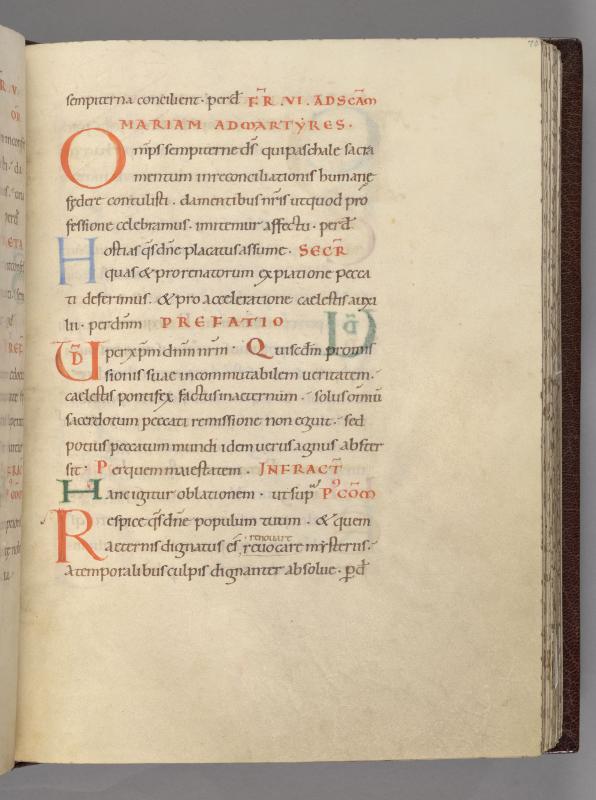 sempiterna concilient · perd̄ F̄R · VI · AD SC̄AM
MARIAM AD MARTYRES ·
Om̄ps sempiterne d̄s qui paschale sacra
mentum in reconciliationis humanę
fędere contulisti · da mentibus nr̄is ut quod pro
fessione celebramus · imitemur affectu · perd̄
Hostias q̄s dn̄e placatus assume · SECR̄
quas & pro renatorum expiatione pecca
ti deferimus · & pro acceleratione caelestis auxi
lii · per dn̄m PREFATIO
UD̄ per xp̄m dnm̄ nrm̄ · Qui secdm̄ promis
sionis suae incommutabilem veritatem ·
caelestis pontifex factus in aeternum · solus omiū
sacerdotum peccati remissione non eguit · sed
potius peccatum mundi idem verus agnus abster
sit · Per quem maiestatem · INFRACT̄
Hanc igitur oblationem · ut sup P COM̄
Respice q̄s dn̄e populum tuum · & quem
renovare
aeternis dignatus es̄ revocare mysteriis ·
a temporalibus culpis dignanter absolve · p̄d̄